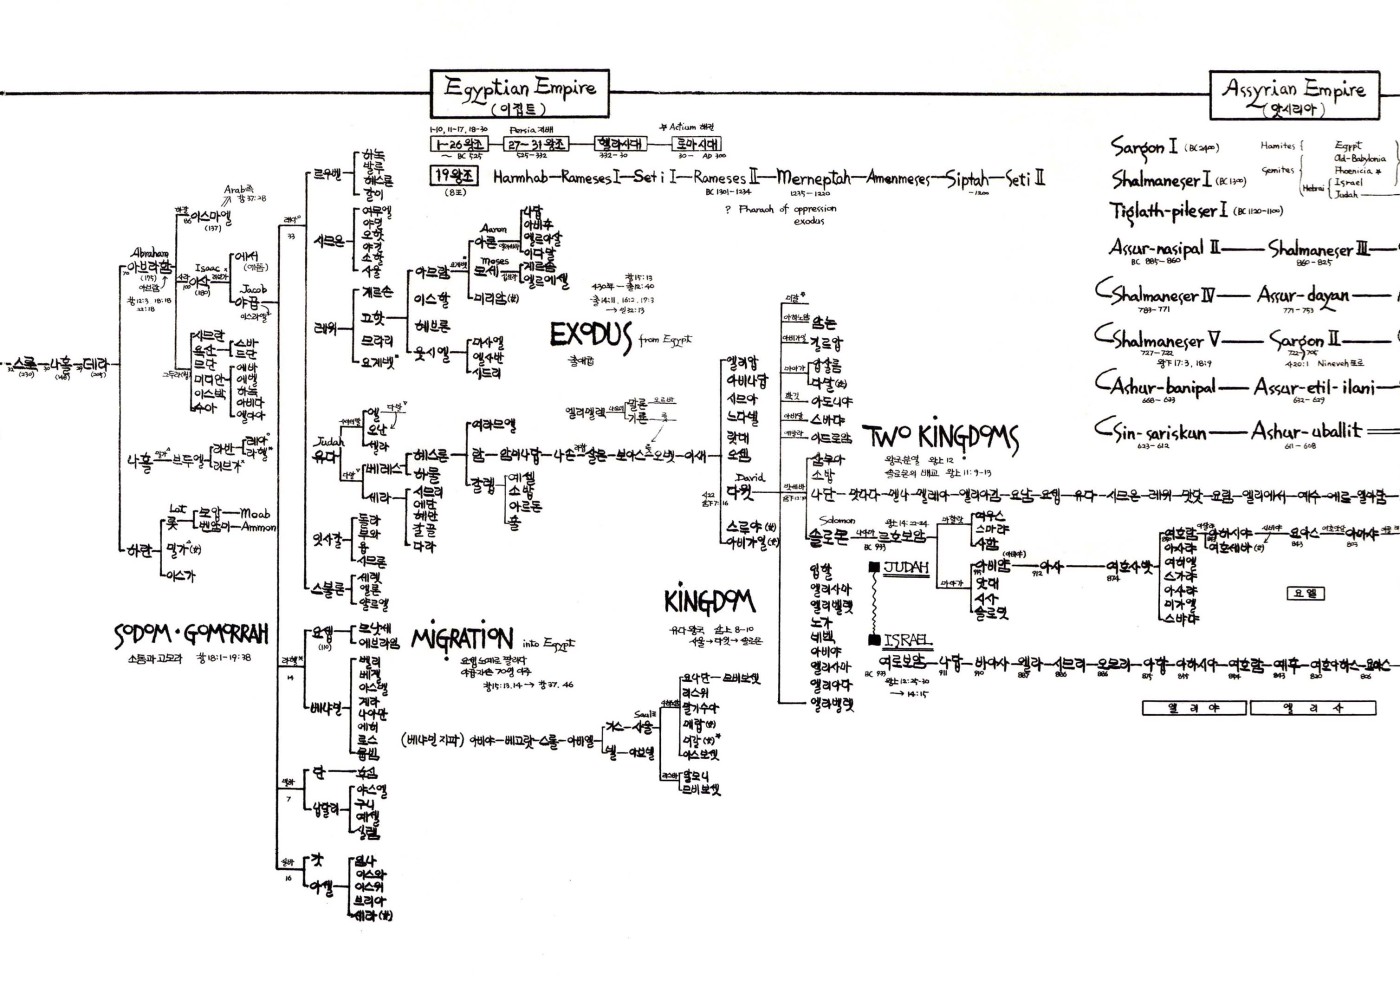 Egyptian Empire
(이집트)
Assyrian Empire
(앗시리아)
1-10, 11-17, 18-30
Persia 지배
1~26 왕조
27~31 왕조
헬라시대
로마시대
~ BC 525
525-332
332-30
30- AD 300
19왕조
Harmhab—Rameses I—Seti I—Rameses II—Merneptah—Amenmeses—Siptah—Seti II
BC 1301-1234
1235-1220
~1200
? Pharaoh of oppression
exodus
Sargon I (BC 2400)
Shalmaneser I (BC 1300)
Tiglath-pileser I (BC 1120-1100)
Assur-nasipal II — Shalmaneser III
BC 885-860
860-825
Shalmaneser IV — Assur-dayan
783-771
771-753
Shalmaneser V — Sargon II
727-722
722-705
왕下 17:3, 18:9
Ashur-banipal — Assur-etil-ilani
Sin-sariskun — Ashur-uballit
623-612
611-608
Hamites { Egypt
Old-Babylonia
Semites
Phoenicia
Hebrai { Israel
Judah
Abraham
아브라함
(175)
아브람
창 12:3 18:18
22:18
이스마엘
(137)
창 37:28
Isaac
이삭
(180)
에서
(에돔)
Jacob
야곱
이스라엘
스룩—나홀—데라
(230)
(205)
시므란
욕산
므단
미디안
이스박
수아
스바
드단
에바
에벨
하녹
아비다
엘다아
나홀—브두엘
라반
리브가
레아
라헬
하란
Lot
롯
모압—Moab
벤암미—Ammon
밀가
이스가
SODOM · GOMORRAH
소돔과 고모라 창 18:1-19:38
르우벤
하녹
발루
헤스론
갈미
시므온
여무엘
야민
오핫
야긴
소할
사울
레위
게르손
고핫
므라리
요게벳
아므람
이스할
헤브론
웃시엘
Aaron
아론
Moses
모세
미리암
나답
아비후
엘르아살
이다말
게르솜
엘르에셀
미사엘
엘사반
시드리
430年 — 출 12:40
창 15:13
출 14:11, 16:2, 17:3
EXODUS from Egypt
출애굽
Judah
유다
엘
오난
셀라
베레스
세라
헤스론
하물
시므리
에단
헤만
갈골
다라
여라므엘
람—암미나답—나손—살몬—보아스—오벳—이새
갈렙
예셀
소밥
아르돈
훌
엘리멜렉
말론
기룐
룻
잇사갈
돌라
부와
욥
시므론
스불론
세렛
엘론
얄르엘
요셉
(110)
므낫세
에브라임
베냐민
벨라
베겔
아스벨
게라
나아만
에히
로스
뭅빔
MIGRATION into Egypt
창 15:13,14 → 창 37, 46
단
후심
납달리
야스엘
구니
예셀
실렘
갓
아셀
임나
이스와
이스위
브리아
세라
엘리압
아비나답
시므아
느다넬
랏대
오셈
David
다윗
스루야
아비가일
암논
길르압
압살롬
다말
아도니야
스바댜
이드르암
삼무아
소밥
나단
Solomon
솔로몬
입할
엘리사마
엘리벨렛
노가
네벡
야비아
엘리사마
엘리아다
엘리벨렛
TWO KINGDOMS
왕국분열 왕上 12
솔로몬의 배교 왕上 11:9-13
나단—맛다다—멘나—멜레아—엘리아김—요남—요셉—유다—시므온—레위—맛닷—요림—엘리에서—예수—에르—엘마담
왕上 14:22-24
르호보암
BC 933
여우스
스마랴
사함
아비얌—아사—여호사밧
앗대
시사
슬로밋
912
874
여호람
아사랴
여히엘
스가랴
아사랴
미가엘
스바댜
아하시야
여호세바
요아스
아마샤
요엘
JUDAH
ISRAEL
여로보암—나답—바아사—엘라—시므리—오므리—아합—아하시야—여호람—예후—여호아하스—요아스
BC 933
왕上 12:25-30
→ 14:15
엘리야
엘리사
KINGDOM
유다왕국 삼上 8-10
사울→다윗→솔로몬
(베냐민 지파) 아비야—베고랏—스롤—아비엘
기스—사울
넬—아브넬
요나단—므비보셋
리스위
말기수아
메랍
미갈
이스보셋
알모니
므비보셋